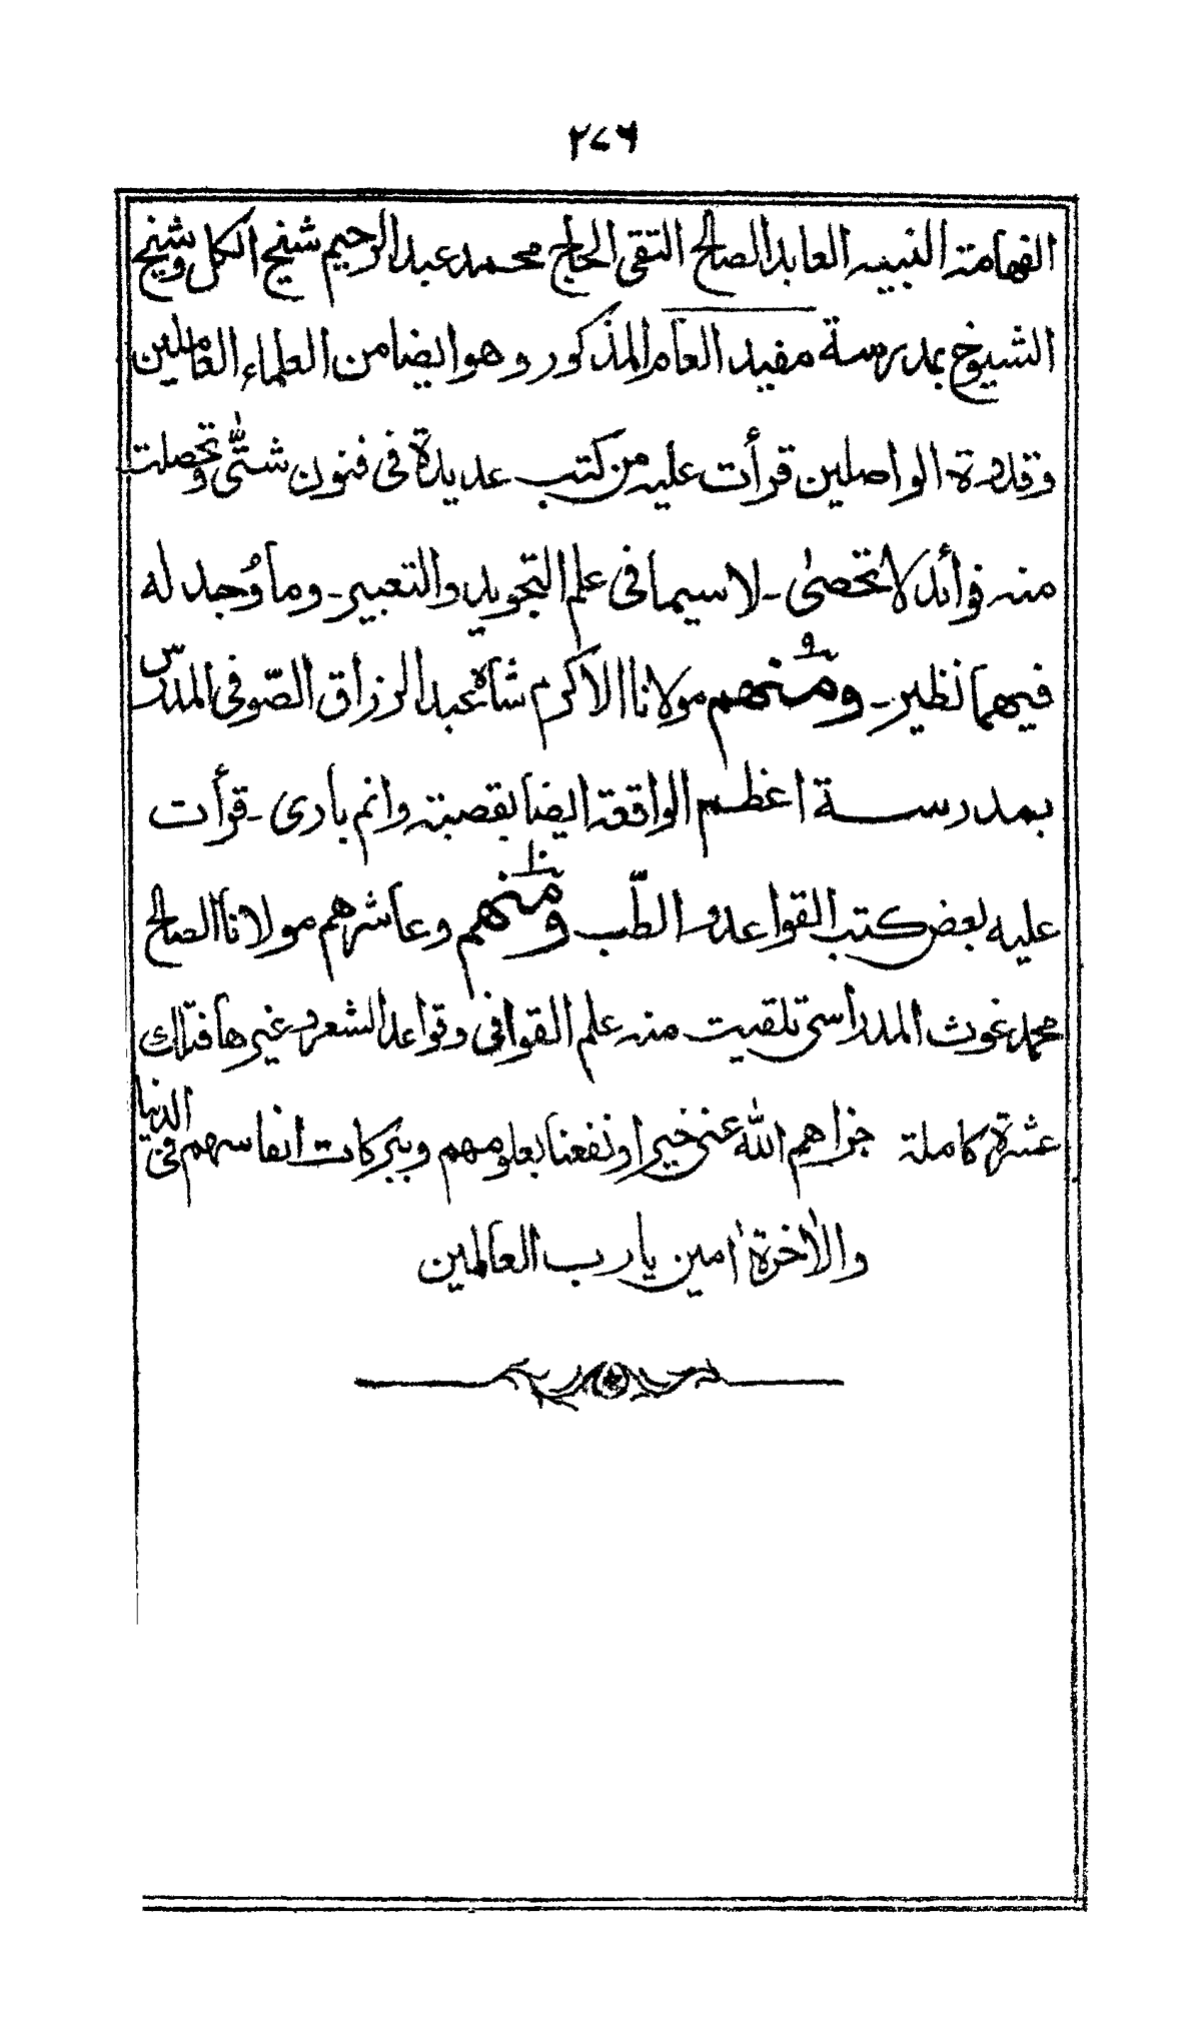 ٢٧٦
الفهامة النبيه العابد الصالح التقى الحاج محمد عبد الرحيم شيخ الكل وشيخ
الشيوخ بمدرسة مفيد العام المذكور وهو ايضا من العلماء العاملين
وقدوة الواصلين قرأت عليه من كتب عديدة فى فنون شتّٰى وتحصلت
منه فوائد لا تحصىٰ - لا سيما فى علم التجويد والتعبير - وما وُجد له
فيهما نظير - ومنهم مولانا الاكرم شاه عبد الرزاق الصّوفى المدرس
بمدرسة اعظم الواقعة ايضا بقصبة وانم بارى - قرأت
عليه بعض كتب القواعد والطّب ومنهم وعاشرهم مولانا الصالح
محمد غوث المدراسى تلقيت منه علم القوافى وقواعد الشعر وغيرها فتلك
عشرة كاملة جزاهم اللّٰه عنى خيرا ونفعنا بعلومهم وببركات انفاسهم فى الدنيا
والاٰخرة اٰمين يا رب العالمين